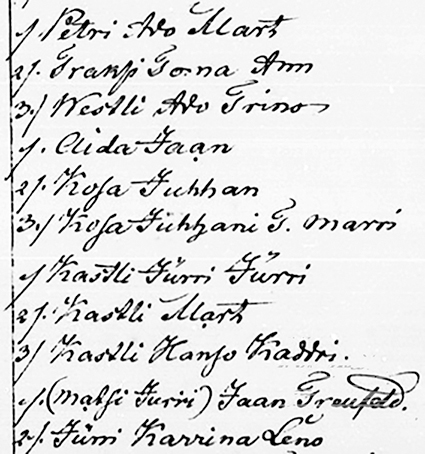 1/. Petri Ado Mart
2/. Traksi Toona Ann
3./ Westli Ado Trino
1/. Aida Jaan
2/. Kosa Juhhan
3./ Kosa Juhhani T. Marri
1/ Kastli Jürri Jürri
2/. Kastli Mart
3/ Kastli Hanso Kaddri.
1/. (Matsi Jurri) Jaan Treufeld.
2/. Jürri Karrina Leno